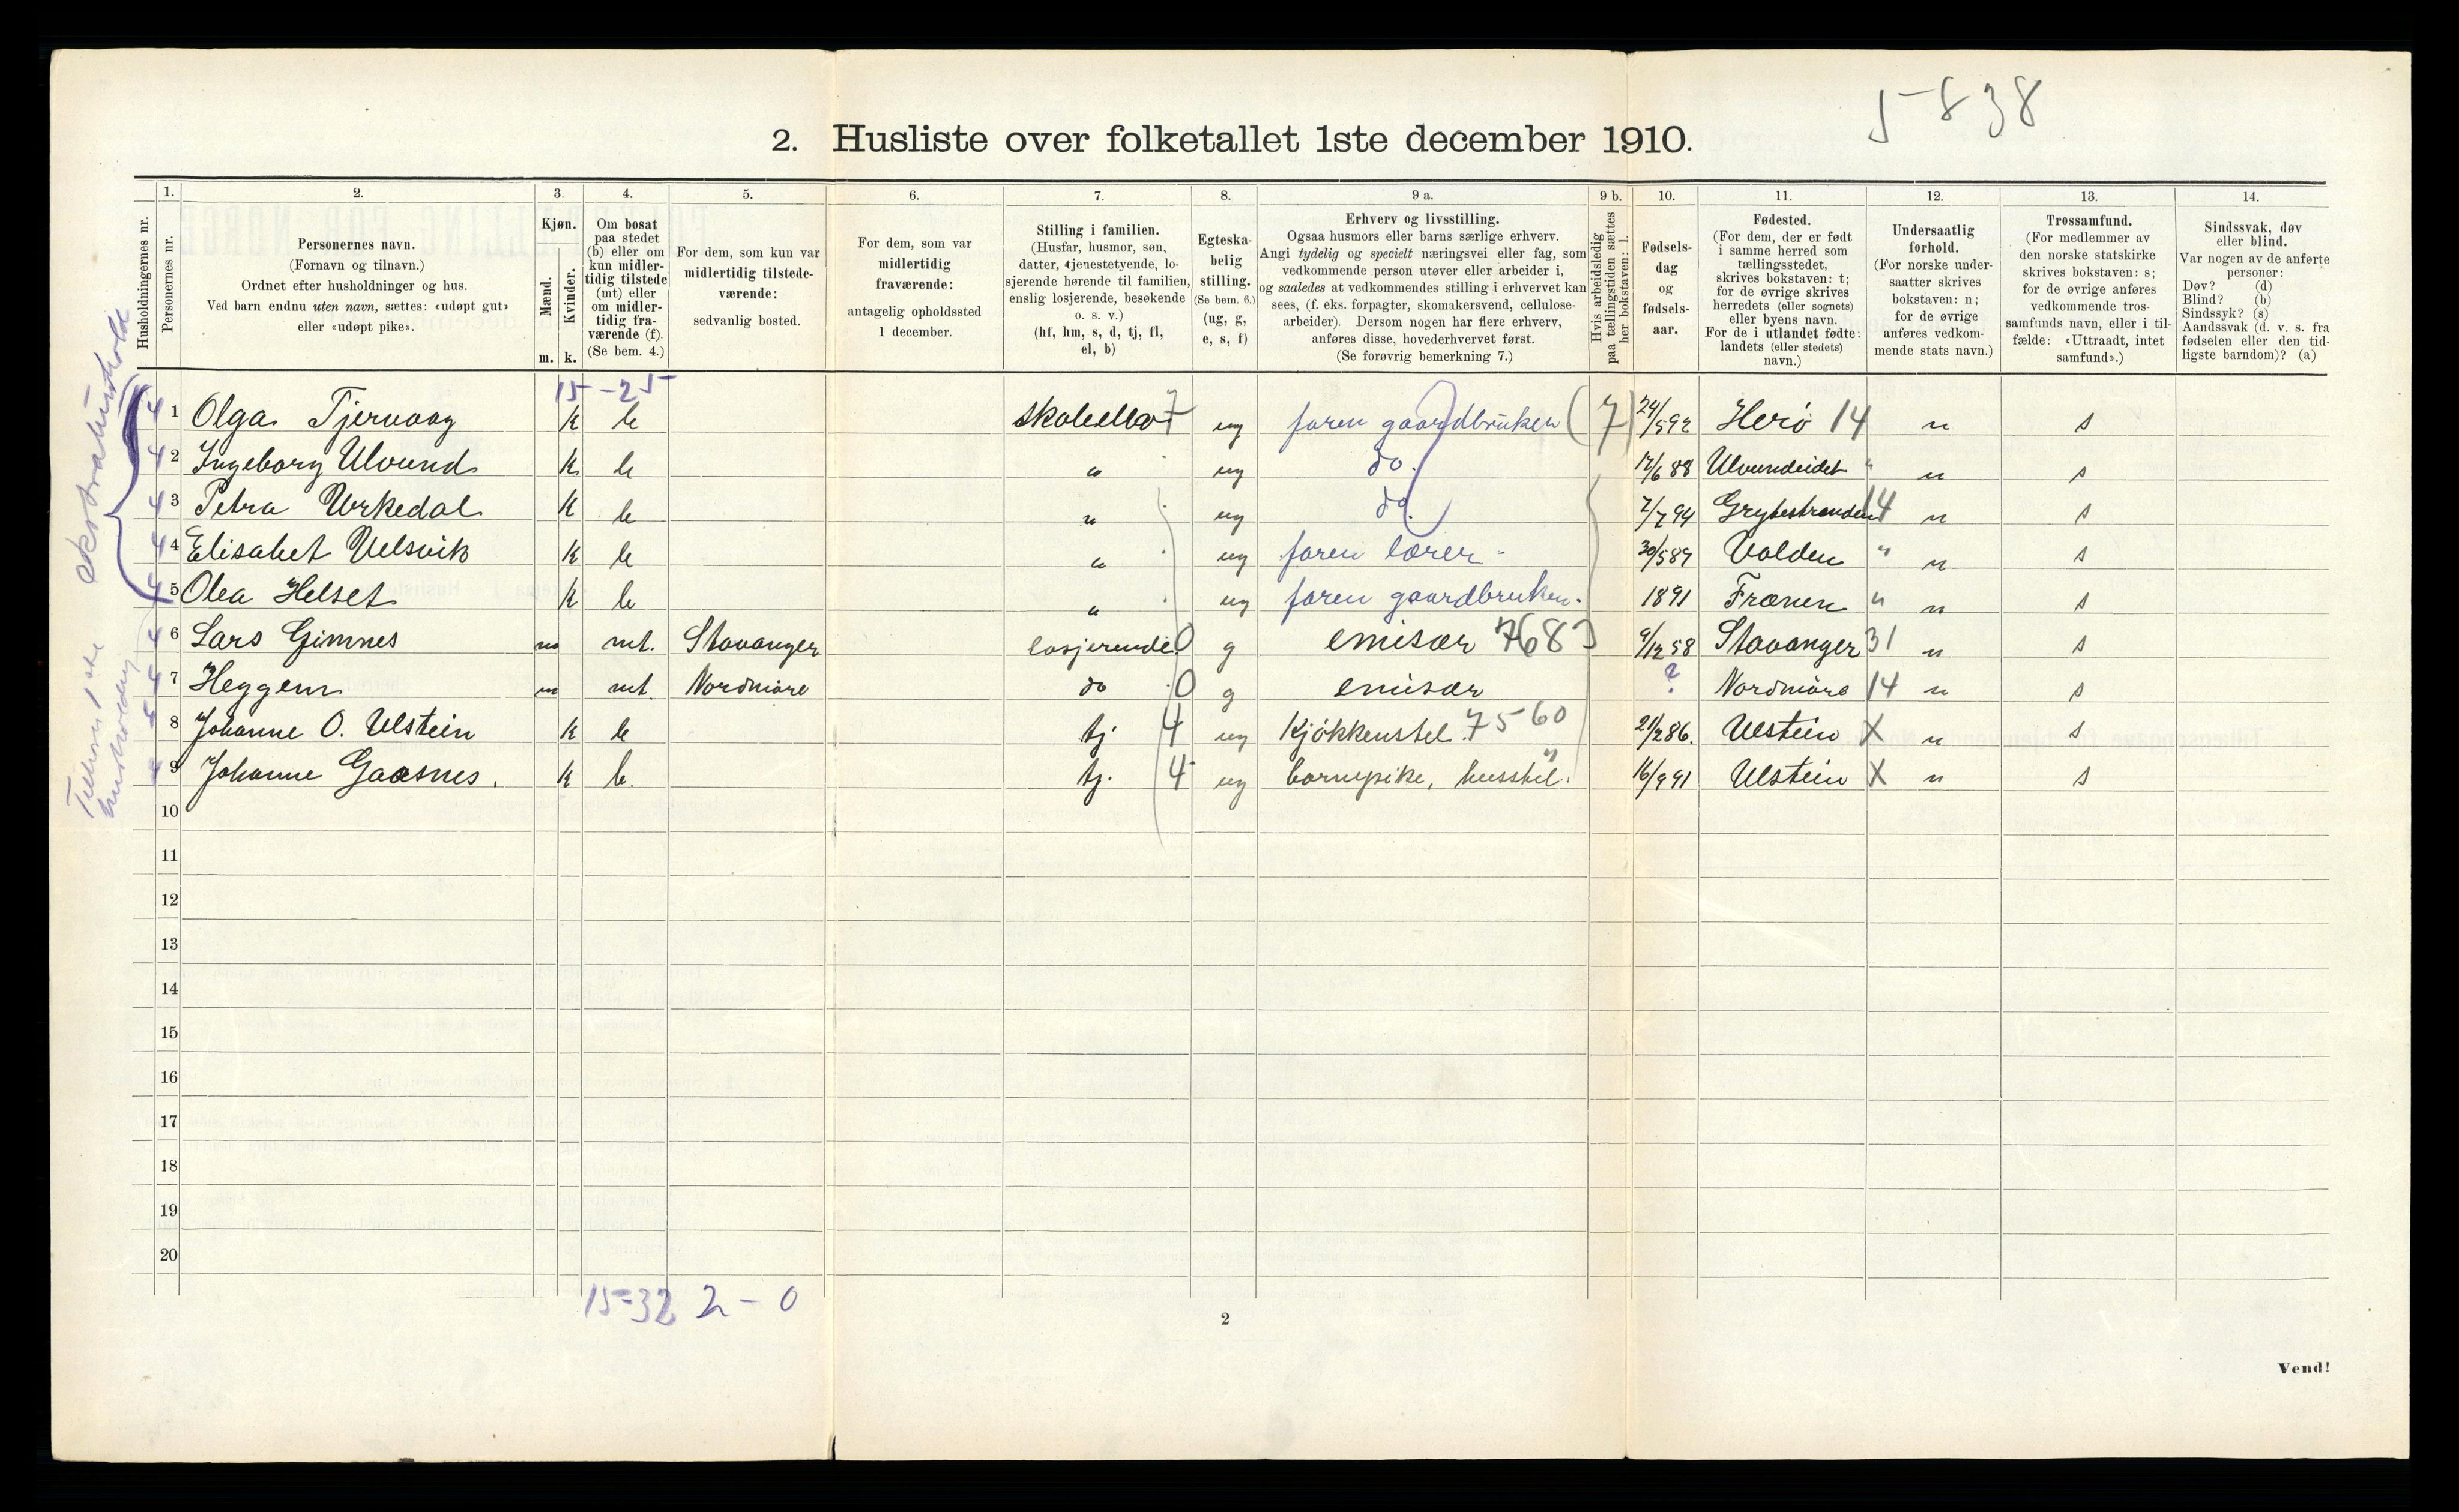 5-838
2. Husliste over folketallet 1ste december 1910.
Husholdningernes nr.
1. Personernes nr.
2. Personernes navn. (Fornavn og tilnavn.) Ordnet efter husholdninger og hus. Ved barn endnu uten navn, sættes: «udøpt gut» eller «udøpt pike».
3. Kjøn. Mænd. m. Kvinder. k.
4. Om bosat paa stedet (b) eller om kun midlertidig tilstede (mt) eller om midlertidig fraværende (f). (Se bem. 4.)
5. For dem, som kun var midlertidig tilstedeværende: sedvanlig bosted.
6. For dem, som var midlertidig fraværende: antagelig opholdssted 1 december.
7. Stilling i familien. (Husfar, husmor, søn, datter, tjenestetyende, losjerende hørende til familien, enslig losjerende, besøkende o. s. v.) (hf, hm, s, d, tj, fl, el, b)
8. Egteskabelig stilling. (Se bem. 6.) (ug, g, e, s, f)
9 a. Erhverv og livsstilling. Ogsaa husmors eller barns særlige erhverv. Angi tydelig og specielt næringsvei eller fag, som vedkommende person utøver eller arbeider i, og saaledes at vedkommendes stilling i erhvervet kan sees, (f. eks. forpagter, skomakersvend, cellulosearbeider). Dersom nogen har flere erhverv, anføres disse, hovederhvervet først. (Se forøvrig bemerkning 7.)
9 b. Hvis arbeidsledig paa tællingstiden sættes her bokstaven: l.
10. Fødselsdag og fødselsaar.
11. Fødested. (For dem, der er født i samme herred som tællingsstedet, skrives bokstaven: t; for de øvrige skrives herredets (eller sognets) eller byens navn. For de i utlandet fødte: landets (eller stedets) navn.)
12. Undersaatlig forhold. (For norske undersaatter skrives bokstaven: n; for de øvrige anføres vedkommende stats navn.)
13. Trossamfund. (For medlemmer av den norske statskirke skrives bokstaven: s; for de øvrige anføres vedkommende trossamfunds navn, eller i tilfælde: «Uttraadt, intet samfund».)
14. Sindssvak, døv eller blind. Var nogen av de anførte personer: Døv? (d) Blind? (b) Sindssyk? (s) Aandssvak (d. v. s. fra fødselen eller den tidligste barndom)? (a)
15-25
4 1 Olga Tjervaag k b 7 ug faren gaardbruker (7) 24/5 92 Herø 14 n s
4 2 Ingeborg Ulvund k b " ug do. 17/6 88 Ulvundeidet " n s
4 3 Petra Urkedal k b " ug do. 7/7 94 Grytestranden 14 n s
4 4 Elisabet Velsvik k b " ug faren lærer 30/5 89 Volden " n s
4 5 Olea Helset k b " ug faren gaardbruker. 1891 Frænen " n s
4 6 Lars Gimnes m mt. Stavanger losjerende 0 g emisær 7683 9/12 58 Stavanger 31 n s
4 7 Heggem m mt. Nordmøre do 0 g emisær ? Nordmøre 14 n s
8 Johanne O. Ulstein k b tj 4 ug Kjøkkenstel 7560 21/2 86. Ulstein X n s
9 Johanne Gaasnes. k b. tj. 4 ug barnepike, husstel. " 16/9 91 Ulstein X n s
10
11
12
13
14
15
16
17
18
19
20
15-32 2-0
2
Vend!
ekstrahushold
Tilhører 1ste husholdning